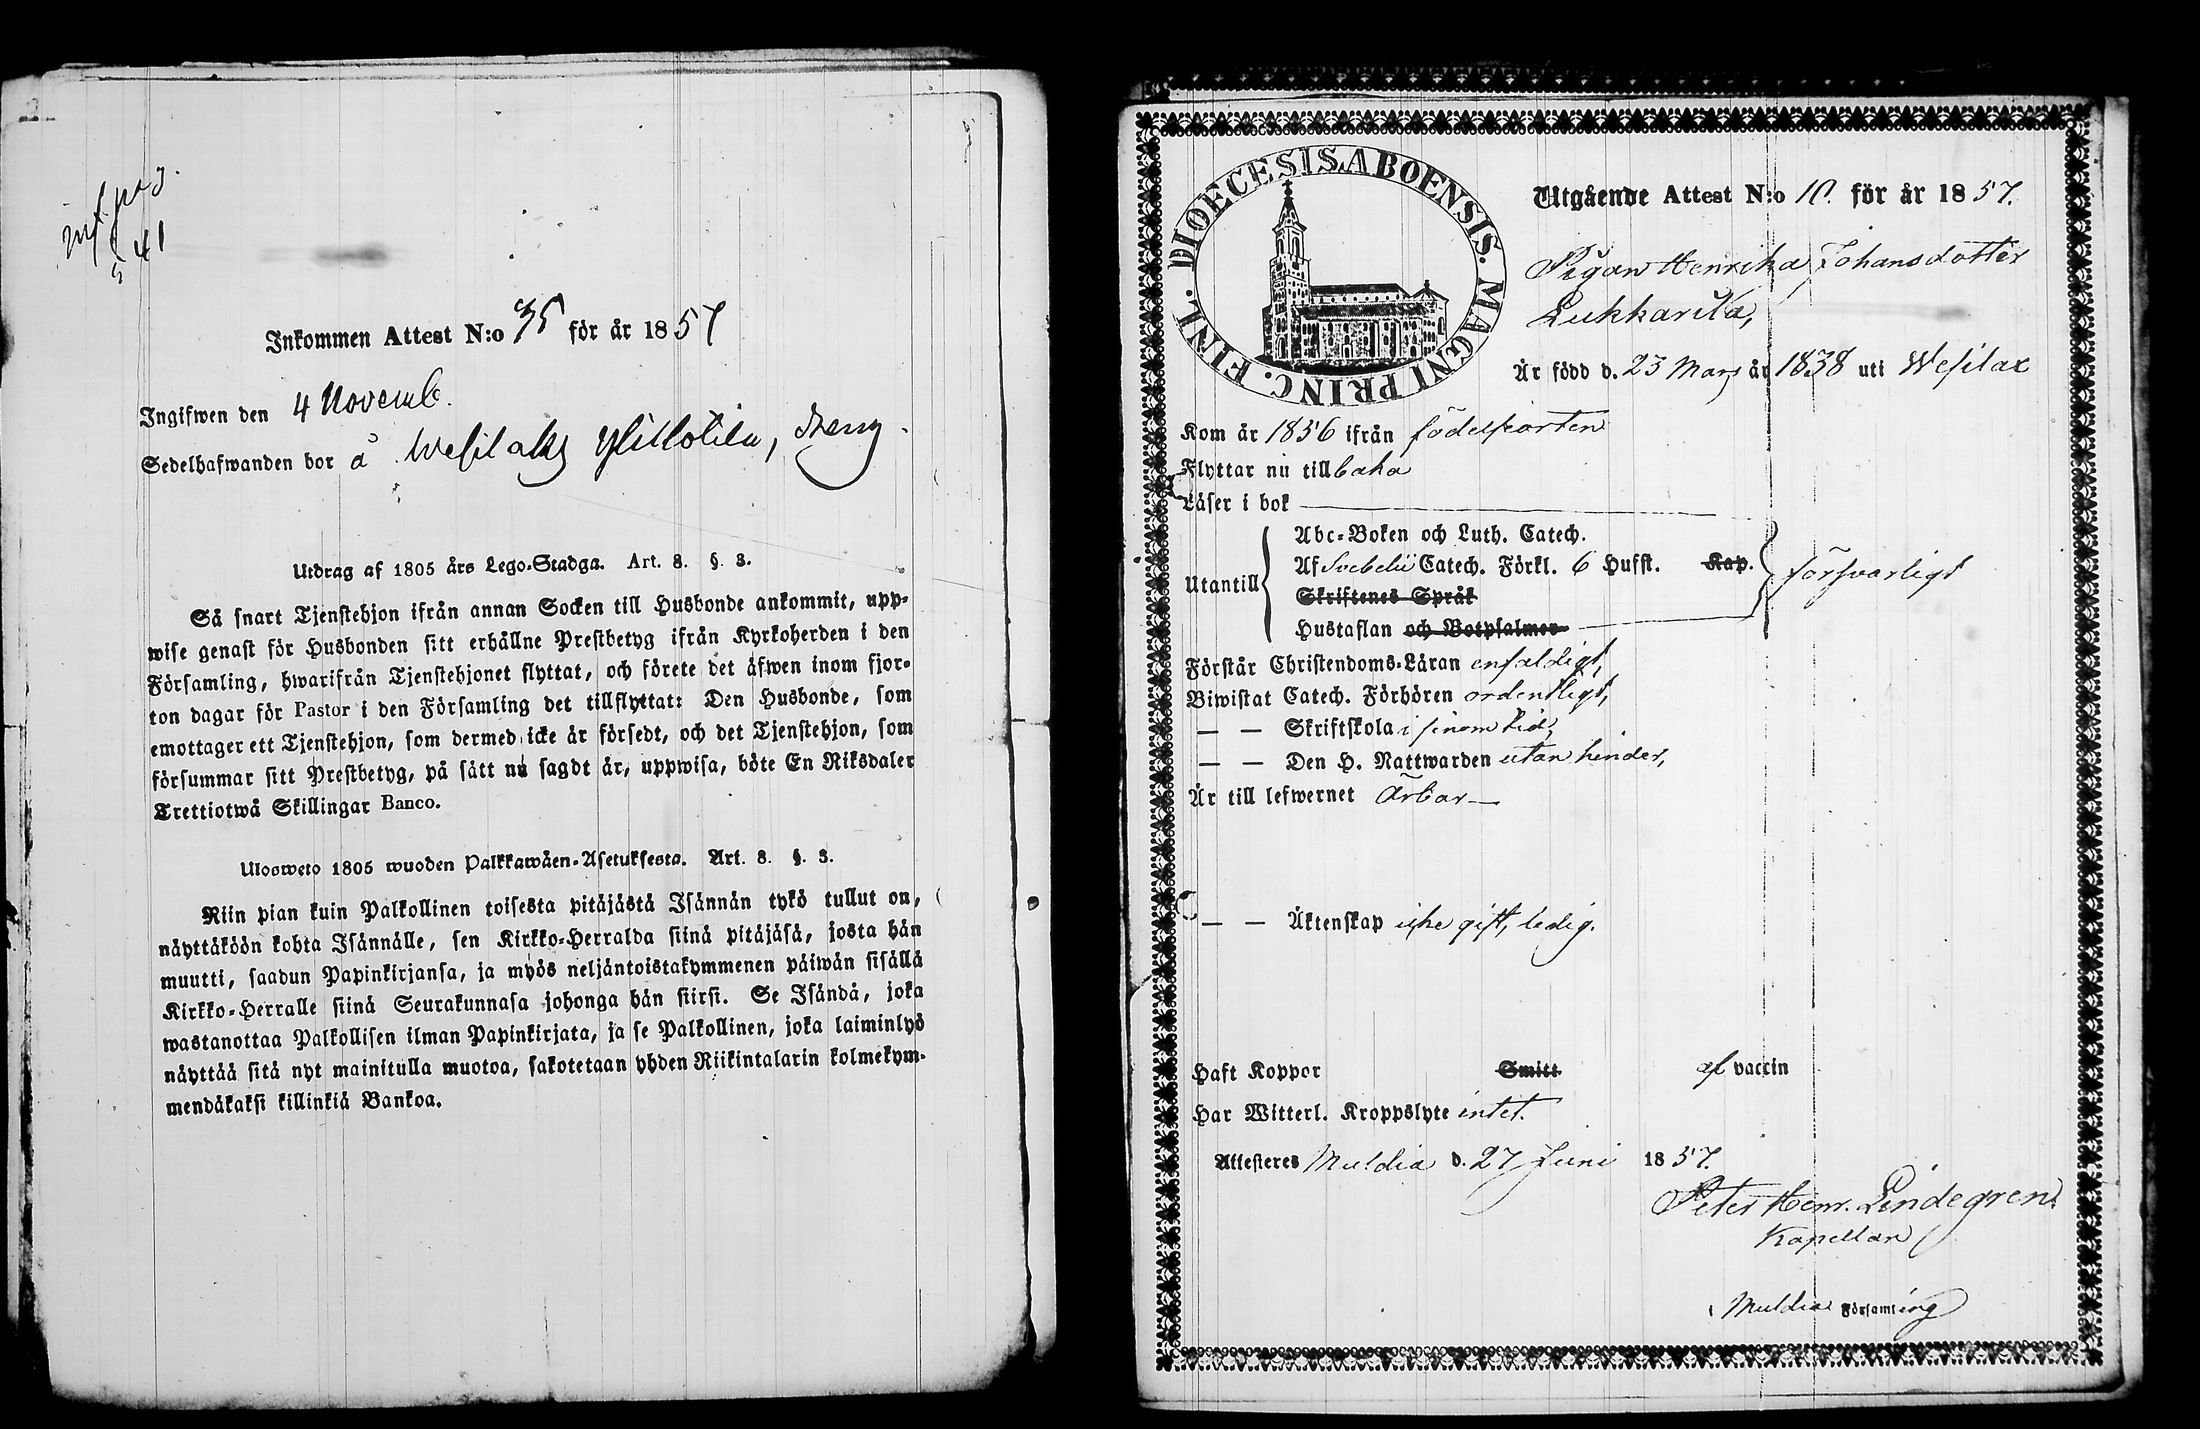 inf. pag.
541
Inkommen Attest N:o 35 för år 1857
Ingifwen den 4 Novemb.
Sedelhafwanden bor å Wesilaks Ylitlotila, dreng.
Utdrag af 1805 års Lego-Stadga. Art. 8. §. 3.
Så snart Tjenstehjon ifrån annan Socken till Husbonde ankommit, upp-
wise genast för Husbonden sitt erhållne Prestbetyg ifrån Kyrkoherden i den
Församling, hwarifrån Tjenstehjonet flyttat, och förete det äfwen inom fjor-
ton dagar för Pastor i den Församling det tillflyttat: Den Husbonde, som
emottager ett Tjenstehjon, som dermed icke är försedt, och det Tjenstehjon, som
försummar sitt Prestbetyg, på sätt nu sagdt är, uppwisa, böte En Riksdaler
Trettiotwå Skillingar Banco.
Ulosweto 1805 wuoden Palkkawäen-Asetuksesta. Art. 8. §. 3.
Niin pian kuin Palkollinen toisesta pitäjästä Isännän tykö tullut on,
näyttäköön kohta Isännälle, sen Kirkko-Herralda siinä pitäjäsä, josta hän
muutti, saadun Papinkirjansa, ja myös neljäntoistakymmenen päiwän sisällä
Kirkko-Herralle siinä Seurakunnasa johonga hän siirsi. Se Isändä, joka
wastanottaa Palkollisen ilman Papinkirjata, ja se Palkollinen, joka laiminlyö
näyttää sitä nyt mainitulla muotoa, sakotetaan yhden Riikintalarin kolmekym-
mendäkaksi killinkiä Bankoa.
DIOECESIS ABOENSIS. MAGNI PRINC. FINL.
Utgående Attest N:o 10. för år 1857.
Pigan Henrika Johansdotter
Lukkarila,
Är född d. 23 Mars år 1838 uti Wesilax
Kom år 1856 ifrån födelseorten
Flyttar nu tillbaka
Läser i bok
Abc-Boken och Luth. Catech.
Utantill Af Svebelii Catech. Förkl. 6 Hufst. Kap. försvarligt
Skriftenes Språk
Hustaflan och Botpsalmer
Förstår Christendoms-Läran enfaldigt,
Biwistat Catech. Förhören ordentligt,
— — Skriftskola i sinom tid,
— — Den H. Nattwarden utan hinder,
Är till lefwernet ärbar —
— — Äktenskap icke gift, ledig.
Haft Koppor Smitt af vaccin
Har Witterl. Kroppslyte intet.
Attesteres Muldia d. 27 Juni 1857.
Peter Henr. Lindegren.
Kapellan
i Muldia Församling